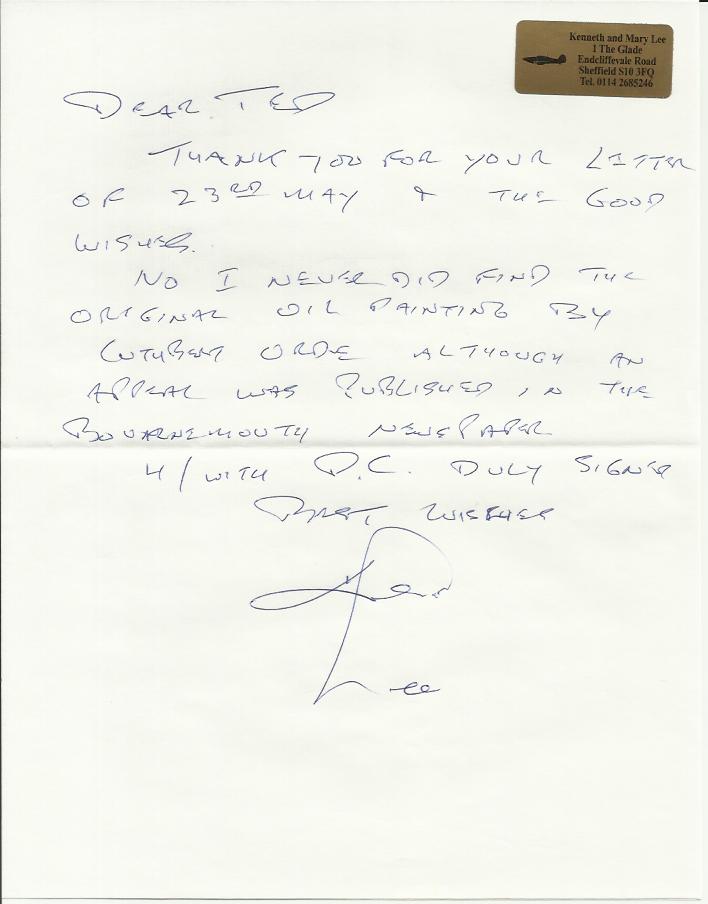 Kenneth and Mary Lee
1 The Glade
Endcliffevale Road
Sheffield S10 3FQ
Tel. 0114 2685246
DEAR TED
THANK YOU FOR YOUR LETTER
OF 23RD MAY & THE GOOD
WISHES.
NO I NEVER DID FIND THE
ORIGINAL OIL PAINTING BY
CUTHBERT ORDE ALTHOUGH AN
APPEAL WAS PUBLISHED IN THE
BOURNEMOUTH NEWSPAPER
H/WITH P.C. DULY SIGNED
BEST WISHES
Ken
Lee